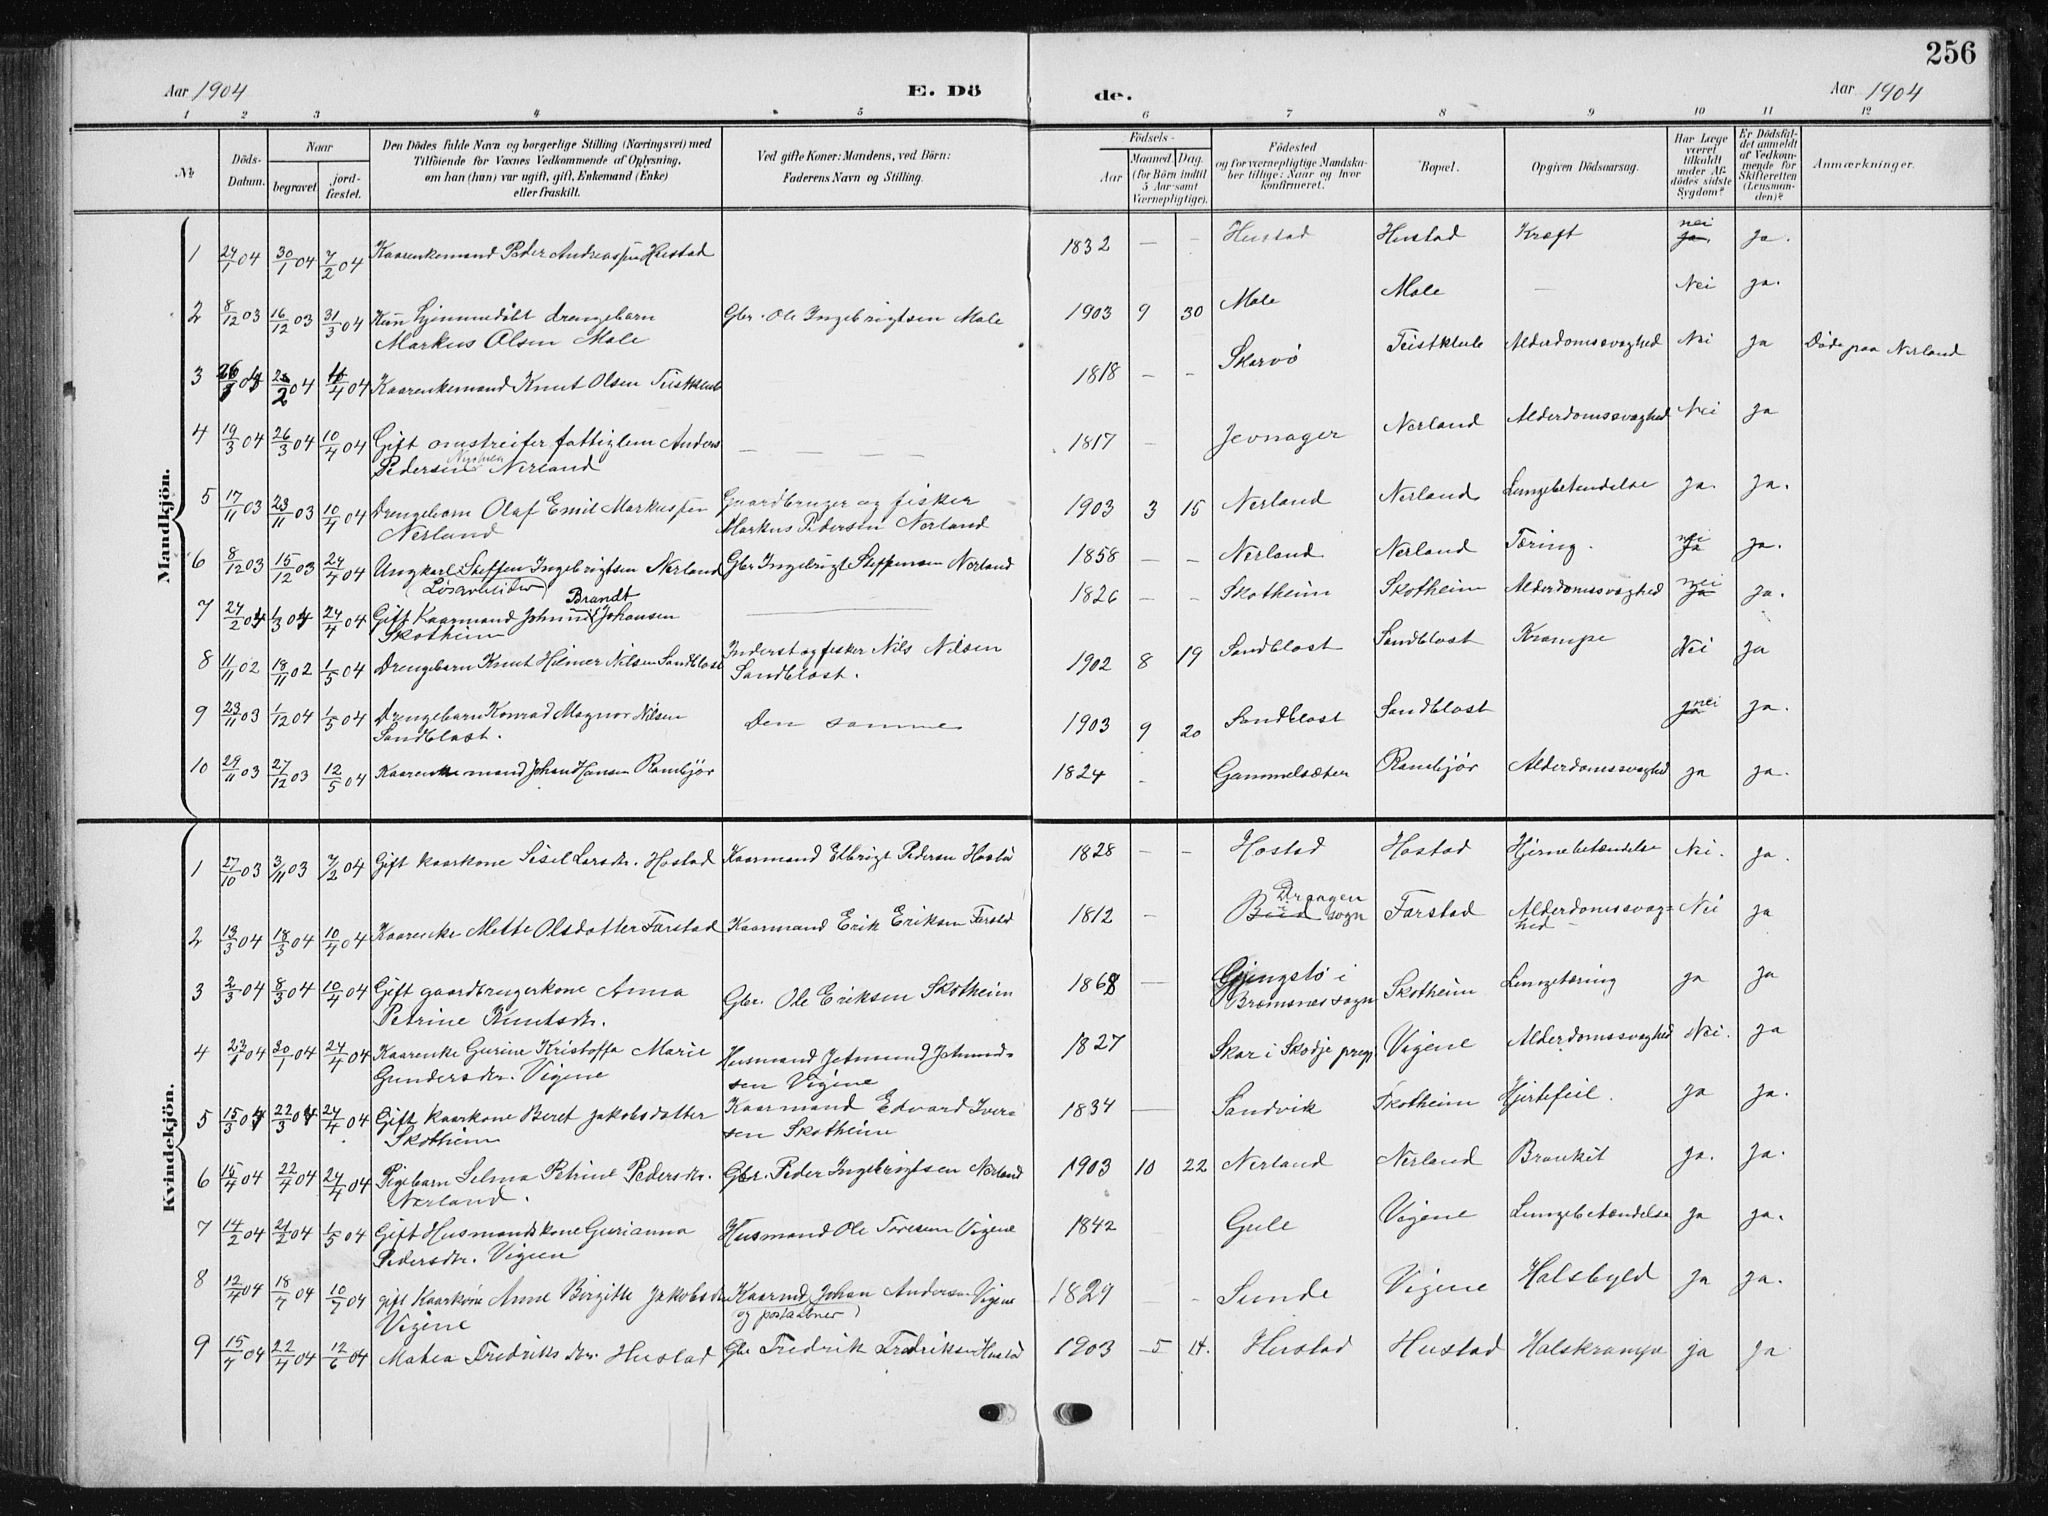 256
Aar 1904 E. Dö de. Aar 1904
1 2 3 4 5 6 7 8 9 10 11 12
№
Döds-Datum.
Naar
begravet.
jord-fæstet.
Den Dödes fulde Navn og borgerlige Stilling (Næringsvei) med
Tilföiende for Voxnes Vedkommende af Oplysning,
om han (hun) var ugift, gift, Enkemand (Enke)
eller fraskilt.
Ved gifte Koner: Mandens, ved Börn:
Faderens Navn og Stilling.
Födsels-
Aar
Maaned. Dag.
(for Börn indtil
5 Aar samt
Værnepligtige).
Födested
og for værnepligtige Mandska-
ber tillige: Naar og hvor
konfirmeret.
Bopæl.
Opgiven Dödsaarsag.
Har Læge
været
tilkaldt
under Af-
dödes sidste
Sygdom?
Er Dödsfal-
det anmeldt
af Vedkom-
mende for
Skifteretten
(Lensman-
den)?
Anmærkninger.
Mandkjön.
1 24/1 04 30/1 04 7/2 04 Kaarenkemand Peder Andreassen Hustad 1832 — — Hustad Hustad Kræft nei ja. ja.
2 8/12 03 16/12 03 31/3 04 Kun hjemmedøbt drengebarn Gbr. Ole Ingebrigtsen Male 1903 9 30 Male Male — Nei ja.
Markus Olsen Male
3 04 04 /4 04 Kaarenkemand Knut Olsen 1818 — — Skarvø Teistklub Alderdomssvaghed Nei ja Døde paa Nerland
4 19/3 04 26/3 04 10/4 04 Gift omstreifer fattiglem Anders — — — — 1817 — Jevnager Nerland Alderdomssvaghed Nei ja
Pedersen Nerland
5 17/11 03 23/11 03 10/4 04 Drengebarn Olaf Emil Markussen Gaardbruger og fisker 1903 3 15 Nerland Nerland Lungebetendelse ja. ja.
Nerland Markus Pedersen Nerland
6 8/12 03 15/12 03 24/4 04 Ungkarl Steffen Ingebrigtsen Nerland Gbr Ingebrigt Steffensen Nerland 1858 — — Nerland Nerland Tæring. nei ja ja.
(Løsarbeider)
7 24/2 04 1/3 04 24/4 04 Gift Kaarmand Johan Brandt Johansen — 1826 — — Skotheim Skotheim Alderdomssvaghed nei ja ja.
Skotheim
8 11/11 02 18/11 02 1/5 04 Drengebarn Knut Hilmer Nilsen Sandblost Inderst og fisker Nils Nilsen 1902 8 19 Sandblost Sandblost Krampe Nei ja
Sandblost.
9 23/11 03 1/12 04 1/5 04 Drengebarn Konrad Magnor Nilsen Den samme 1903 9 20 Sandblost Sandblost ja nei ja.
Sandblost.
10 29/11 03 27/12 03 12/5 04 Kaarenkemand Johan Hansen Rambjør 1824 — Gammelsæter Rambjør Alderdomssvaghed ja ja.
Kvindekjön.
1 27/10 03 3/11 03 7/2 04 Gift kaarkone Sisel Larsdtr. Hostad Kaarmand Elbrigt Pedersen Hostad 1828 — — Hostad Hostad Hjernebetændelse Nei. ja.
2 13/3 04 18/3 04 10/4 04 Kaarenke Mette Olsdatter Farstad Kaarmand Erik Eriksen Farstad 1812 — Drangen Bud sogn Farstad Alderdomssvag= Nei ja
hed
3 2/3 04 8/3 04 10/4 04 Gift gaardbrugerkone Anna Gbr. Ole Eriksen Skotheim 1868 — Gjengstø i Skotheim Lungetæring ja ja
Petrine Knutsdtr. Bremsnes sogn
4 23/1 04 30/1 04 24/4 04 Kaarenke Gurine Kristoffa Marie Husmand Jetmund Johnnd- 1827 Skar i Skodje pregj Vigene Alderdomssvaghed Nei. ja
Gundersdtr. Vigene sen Vigene
5 15/3 04 22/3 04 24/4 04 Gift kaarkone Beret Jakobsdatter Kaarmand Edvard Iver- 1834 — Sandvik Skotheim Hjertefeil. ja ja.
Skotheim sen Skotheim
6 15/4 04 22/4 04 24/4 04 Pigebarn Selma Petrine Pedersdtr. Gbr. Peder Ingebrigtsen Nerland 1903 10 22 Nerland Nerland Bronkit ja. ja.
Nerland.
7 14/2 04 21/2 04 1/5 04 Gift Husmandskone Gurianna Husmand Ole Toresen Vigene 1842 — Gule Vigene Lungebetændelse ja ja.
Pedersdtr. Vigen
8 12/4 04 18/4 04 10/7 04 gift Kaarkone Anne Birgitte Jakobsdtr Kaarmd Johan Andersen Vigene 1829 — — Sunde Vigene Halsbyld ja ja.
Vigene og postaabner
9 15/4 04 22/4 04 12/6 04 Matea Fredriksdtr. Hustad Gbr Fredrik Fredriksen Hustad 1903 5 14. Hustad Hustad Halskrampe ja ja